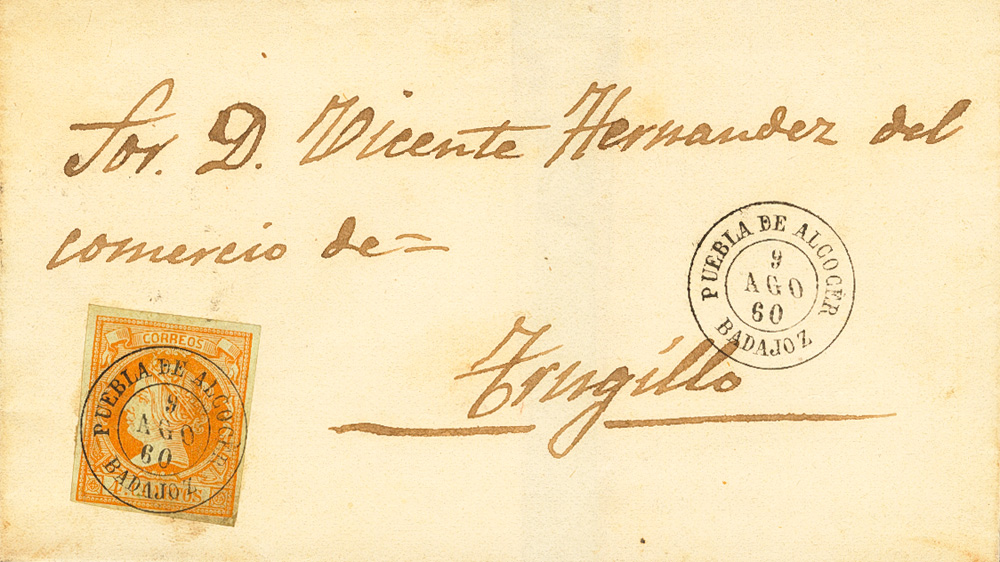 Sor. D. Vicente Hernandez del
comercio de=
Trugillo
PUEBLA DE ALGOCÉR
9
AGO
60
BADAJOZ
CORREOS
PUEBLA DE ALGOCÉR
9
AGO
60
BADAJOZ